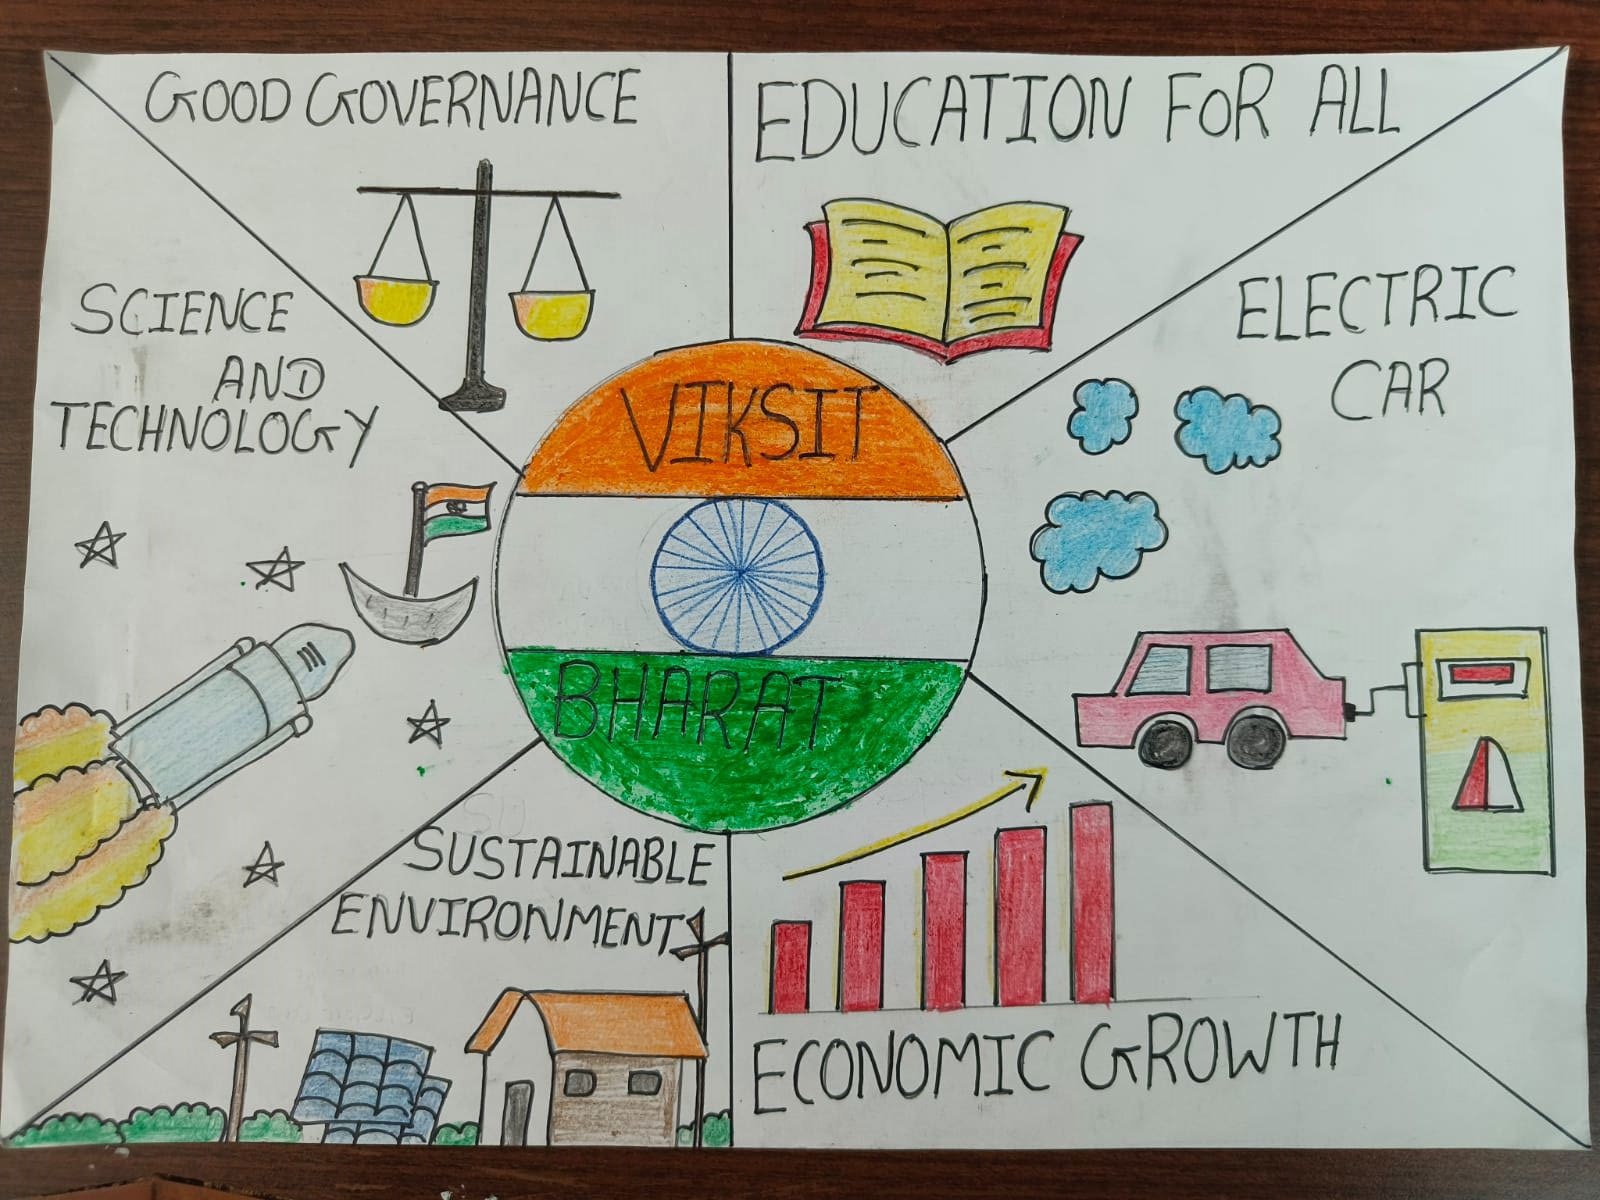 GOOD GOVERNANCE
EDUCATION FOR ALL
SCIENCE
AND
TECHNOLOGY
ELECTRIC
CAR
VIKSIT
BHARAT
SUSTAINABLE
ENVIRONMENT
ECONOMIC GROWTH